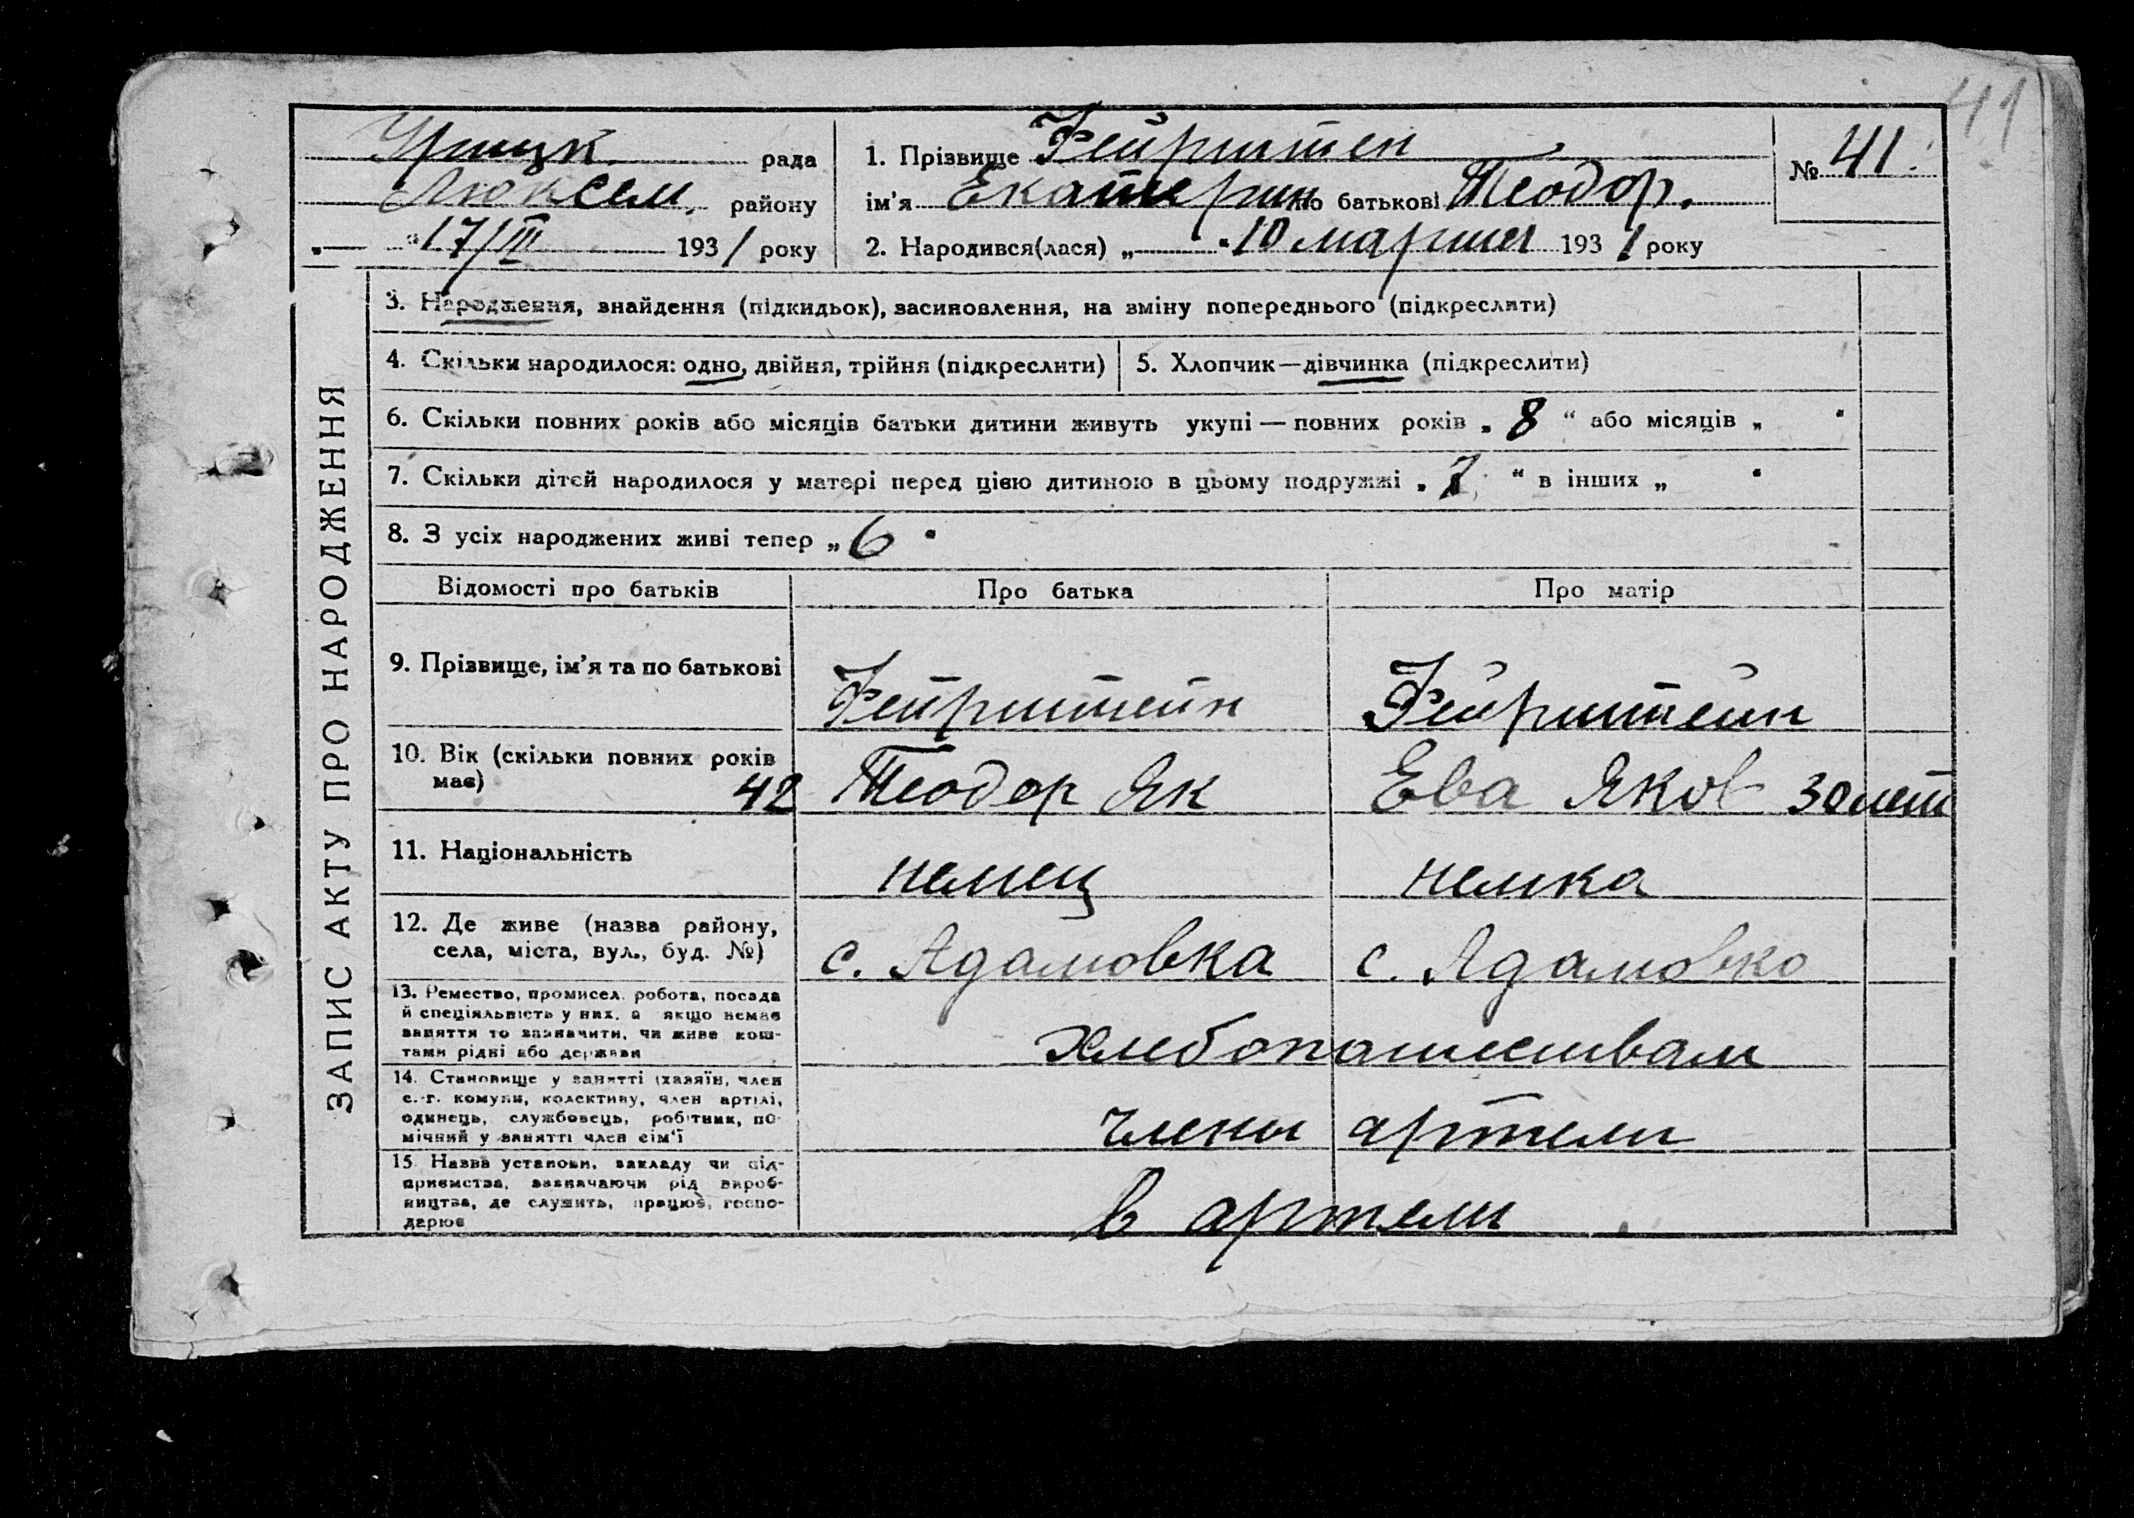 41
Урицк. рада
Люксем. району
„— “ 17/III 1931 року
1. Прізвище Фейрштен
ім'я Екатерин по батькові Теодор.
2. Народився(лася) „ “ 10 марта 1931 року
№ 41.
ЗАПИС АКТУ ПРО НАРОДЖЕННЯ
3. Народження, знайдення (підкидьок), засиновлення, на зміну попереднього (підкреслити)
4. Скільки народилося: одно, двійня, трійня (підкреслити)
5. Хлопчик—дівчинка (підкреслити)
6. Скільки повних років або місяців батьки дитини живуть укупі — повних років „ 8 “ або місяців „ “
7. Скільки дітей народилося у матері перед цією дитиною в цьому подружжі „ 7 “ в інших „ “
8. З усіх народжених живі тепер „ 6 “
Відомості про батьків
Про батька
Про матір
9. Прізвище, ім'я та по батькові
Фейрштейн
Фейрштейн
10. Вік (скільки повних років
має) 42
Теодор Як
Ева Яков 30 лет
11. Національність
немец
немка
12. Де живе (назва району,
села, міста, вул., буд. №)
с. Адамовка
с. Адамовка
13. Ремество, промисел, робота, посада
й спеціяльність у них, а якщо немає
заняття то зазначити, чи живе кош-
тами рідні або держави
Хлебопашеством
14. Становище у занятті (хазяїн, член
с.-г. комуни, колективу, член артілі,
одинець, службовець, робітник, по-
мічний у занятті член сім'ї
члены артели
15. Назва установи, закладу чи під-
приємства, зазначаючи рід вироб-
ництва, де служить, працює, госпо-
дарює
в артели